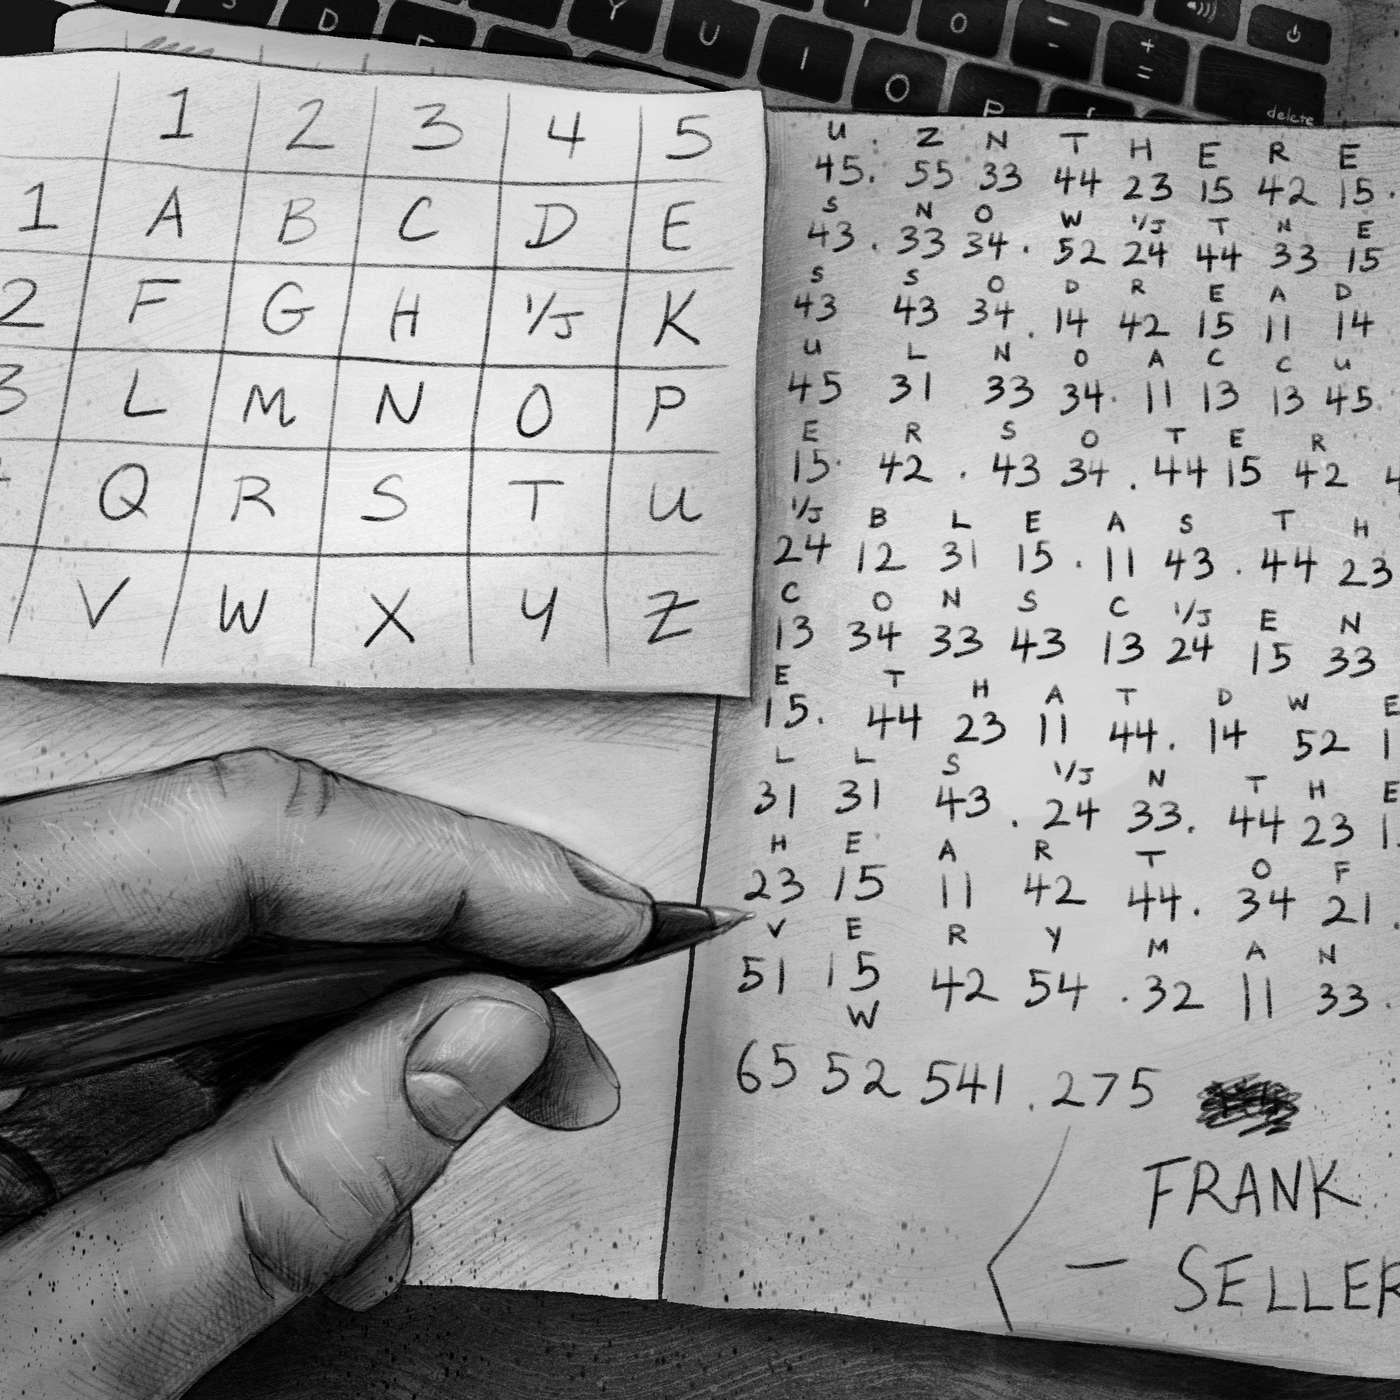 D
Y U I O - + =
O P delete
1 2 3 4 5
1 A B C D E
2 F G H I/J K
3 L M N O P
Q R S T U
V W X Y Z
U . Z N T H E R E
45. 55 33 44 23 15 42 15.
S N O W I/J T N E
43 . 33 34 . 52 24 44 33 15
S S O D R E A D
43 43 34 . 14 42 15 11 14
U L N O A C C U
45 31 33 34 . 11 13 13 45
E R S O T E R
15. 42 . 43 34 . 44 15 42
I/J B L E A S T H
24 12 31 15 . 11 43 . 44 23
C O N S C I/J E N
13 34 33 43 13 24 15 33
E T H A T D W E
15. 44 23 11 44. 14 52
L L S I/J N T H E
31 31 43 . 24 33. 44 23
H E A R T O F
23 15 11 42 44. 34 21 .
V E R Y M A N
51 15 42 54 . 32 11 33
W
65 52 541 . 275
FRANK
– SELLER